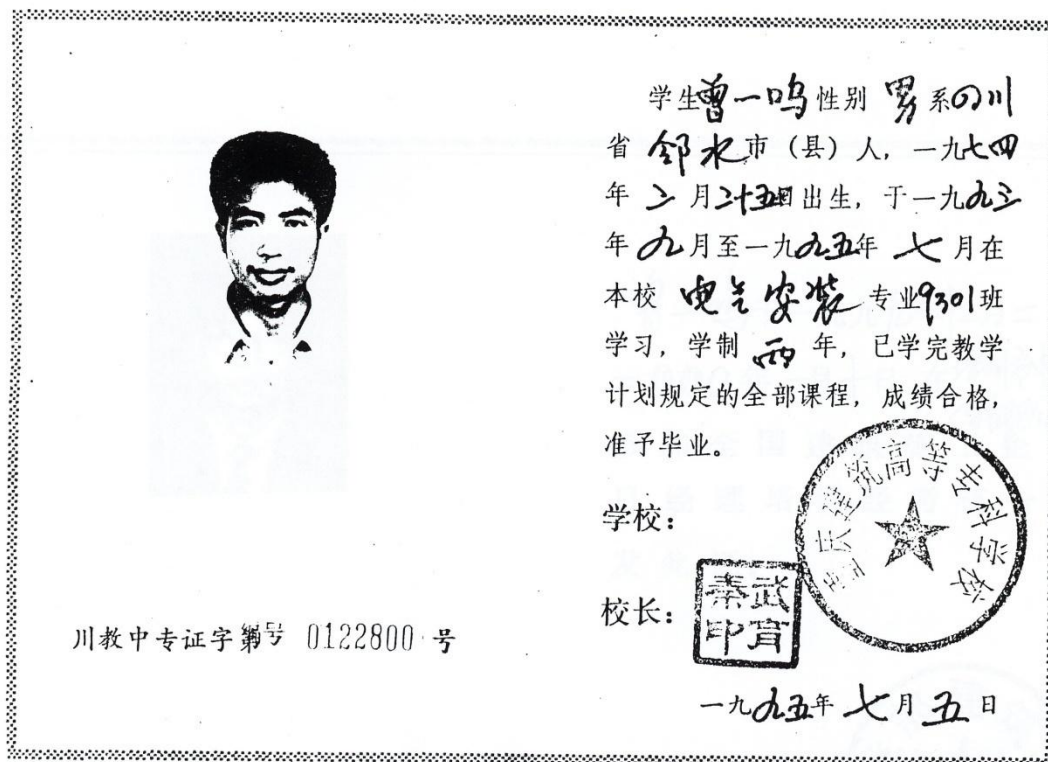 川教中专证字第编号 0122800 号
学生曾一鸣性别 男 系四川
省 邻水 市（县）人，一九七四
年 二 月二十五日出生，于一九九三
年 九 月至一九九五年 七 月在
本校 电气安装 专业9301班
学习，学制 两 年，已学完教学
计划规定的全部课程，成绩合格，
准予毕业。
学校：
重庆建筑高等专科学校
校长：
武育
秦印
一九九五年 七 月 五 日